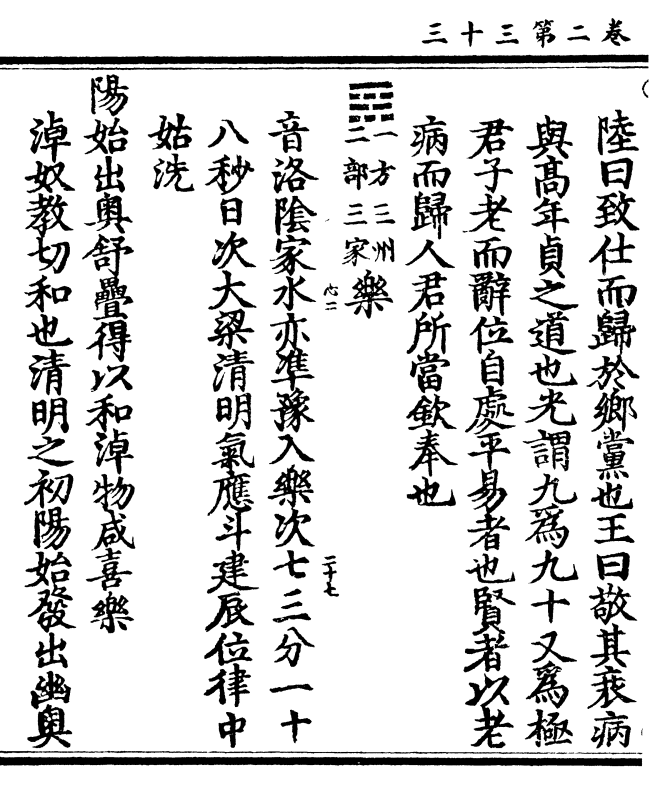 卷二第三十三
陸曰致仕而歸於鄉黨也王曰敬其衰病
與高年貞之道也光謂九爲九十又爲極
君子老而辭位自處平易者也賢者以老
病而歸人君所當欽奉也
一方三州
二部三家
樂
心二
音洛陰家水亦準豫入樂次七三分一十
二十七
八秒日次大梁清明氣應斗建辰位律中
姑洗
陽始出奥舒疊得以和淖物咸喜樂
淖奴教切和也清明之初陽始發出幽奥